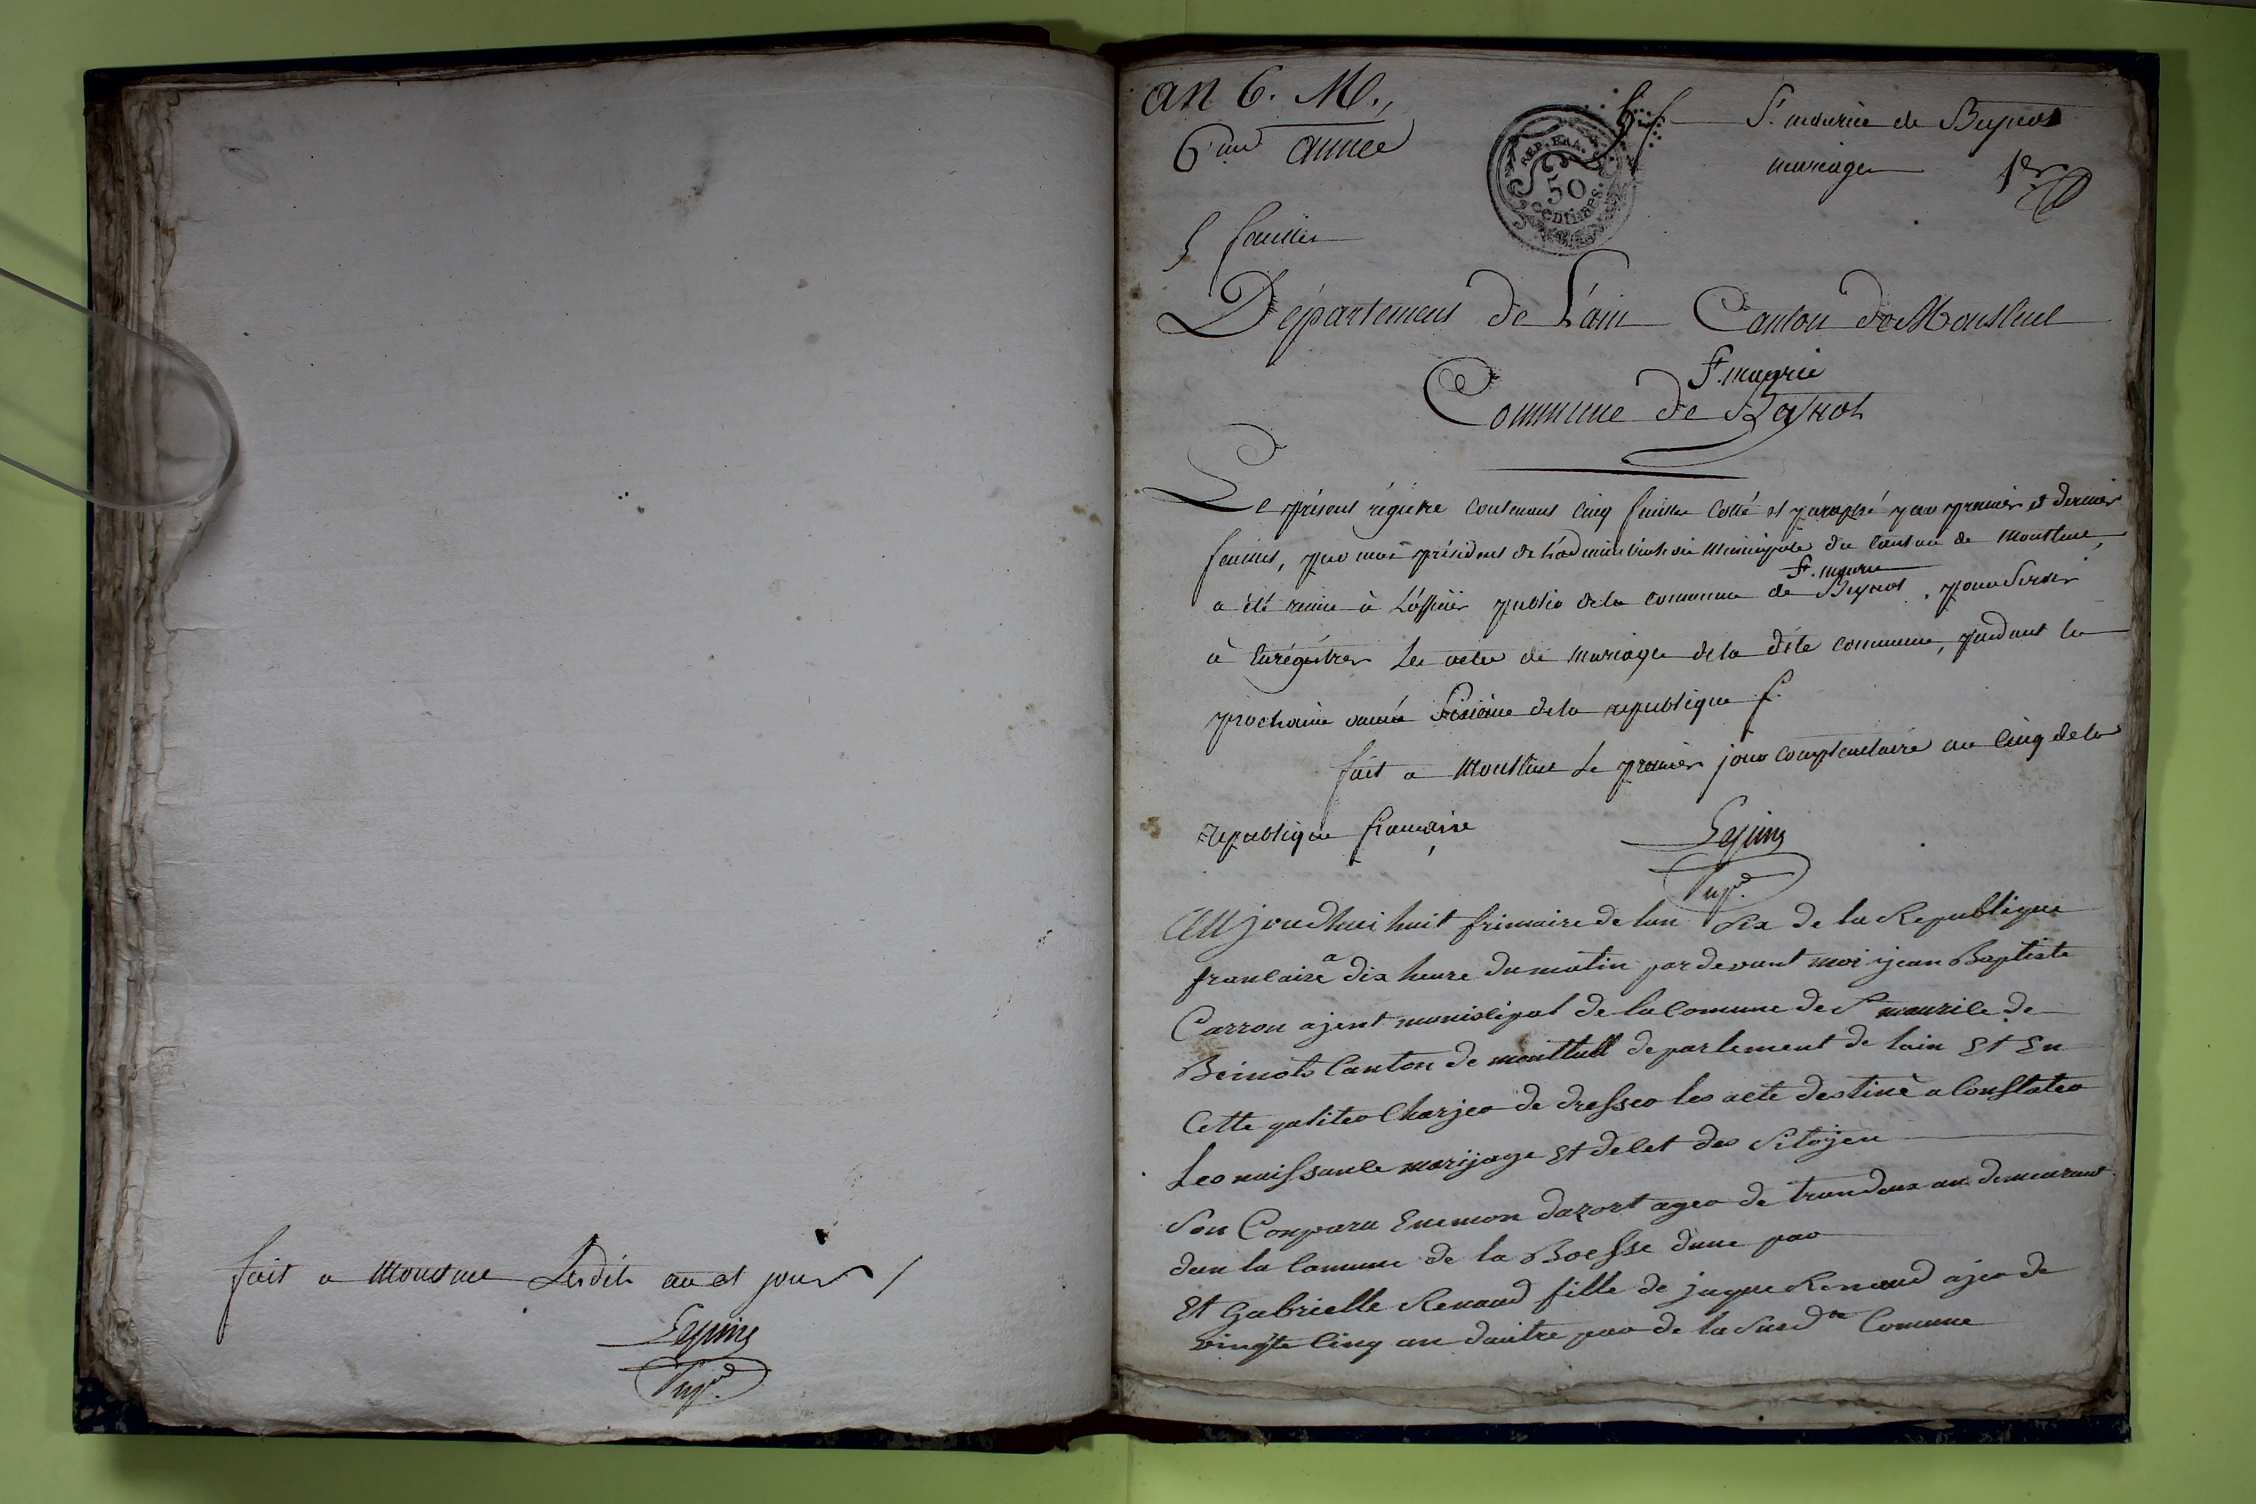 fait a Montluel Lesdits an et jour /
Lepine
Presd.
an 6. M.,
6.me année
St. maurice de Beynost
mariage
1er
REP. FRA.
50
centimes.
5 feuilles
Département de L'ain Canton de Montluel
St. maurice
Commune de Beynost
Le présent régistre contenant cinq feuilles cotté et paraphé par premier et dernier
feuillet, par moi président de L'administration municipale du canton de Montluel,
St. maurice
a été remis à L'officier public de la commune de Beynost, pour Servir
à Enrégistrer Les actes de mariage de la dite commune, pendant la
prochaine année Sixième de la république f.
fait a Montluel Le premier jour complementaire an cinq de la
republique francaise
Lepine
Presd.
Aujourdhui huit frimaire de lan Six de la Republique
francaise a dix heure du matin par devant moi jean Baptiste
Carron ajent municipal de la Comune de St maurice de
Beinots Canton de montluell departement de lain Et En
Cette qualiter Charjer de dresser les acte destiné a Constater
Les naissance marijage Et decet des Sitojen
Son Conparu Enemon dazort ager de trandeux an demeurant
dan la Comune de la Boesse dune par
Et Gabrielle Renaud fille de jaque Renaud ajer de
vingte Cinq an dautre par de la Susdte Comune